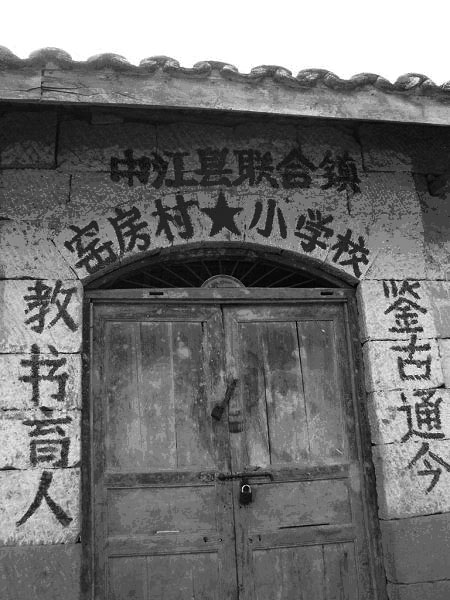 中江县联合镇
窑房村★小学校
教书育人
鉴古通今